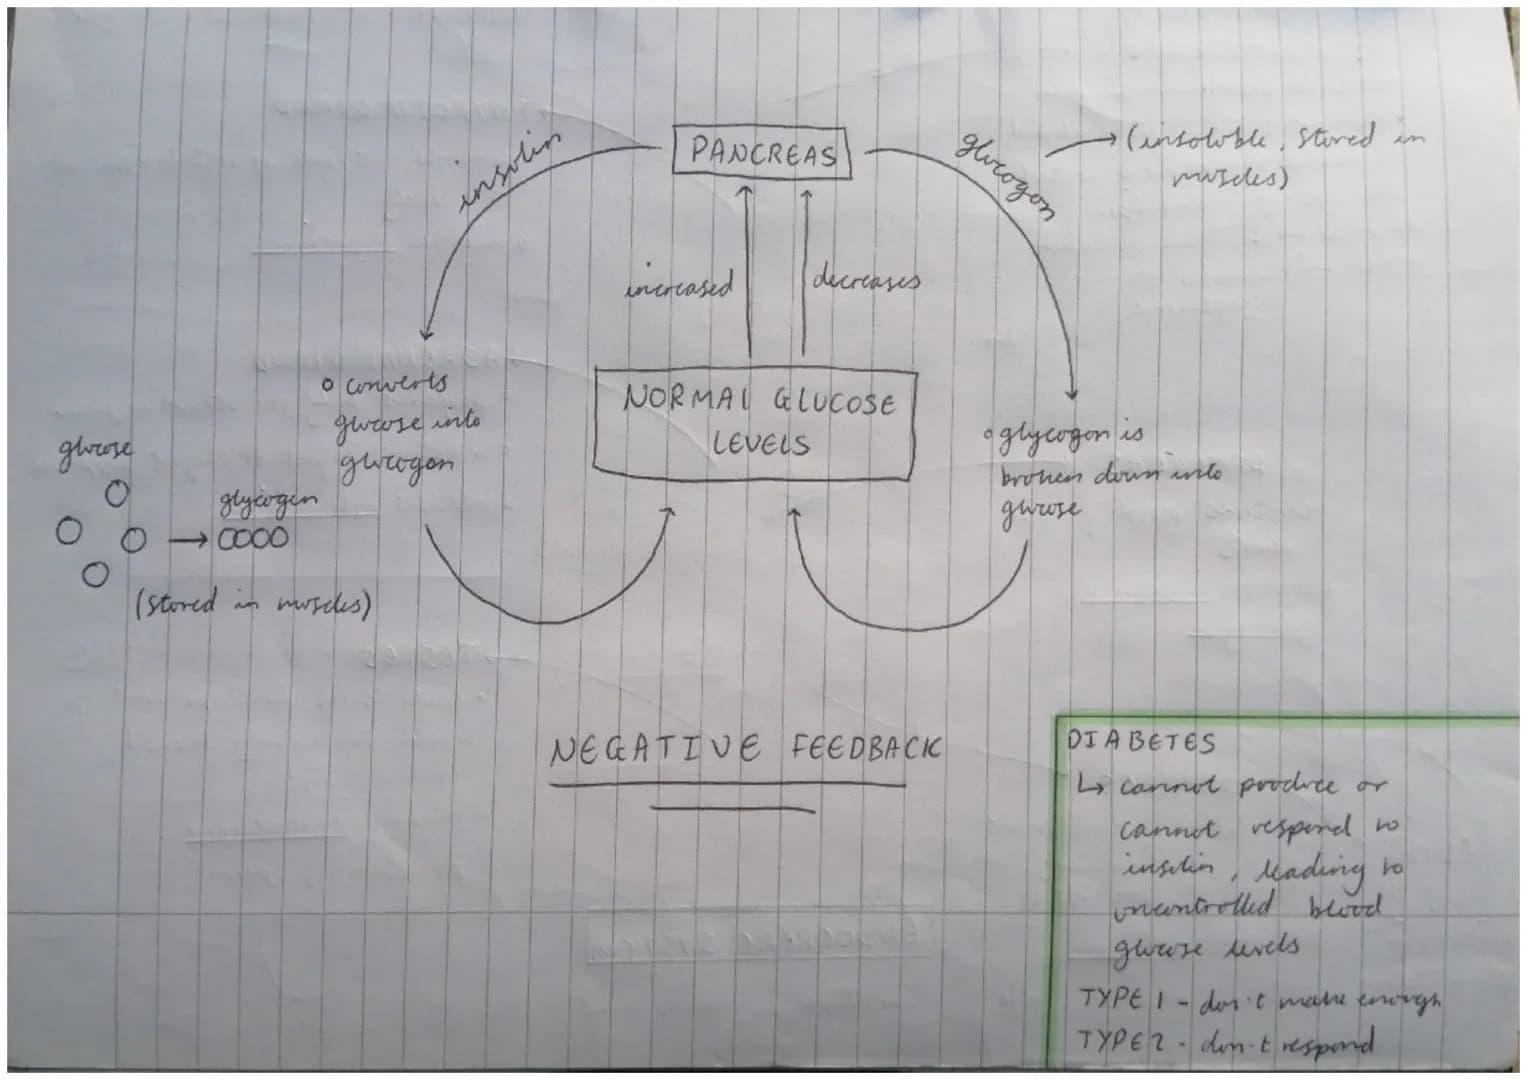 PANCREAS
insulin
glucogon
→ (insoluble, stored in
muscles)
increased
decreases
NORMAL GLUCOSE
LEVELS
o converts
glucose into
glucogon
glucose
glycogen
(stored in muscles)
o glycogon is
broken down into
glucose
NEGATIVE FEEDBACK
DIABETES
↳ cannot produce or
cannot respond to
insulin, leading to
uncontrolled blood
glucose levels
TYPE 1 - don't make enough
TYPE 2 - don't respond